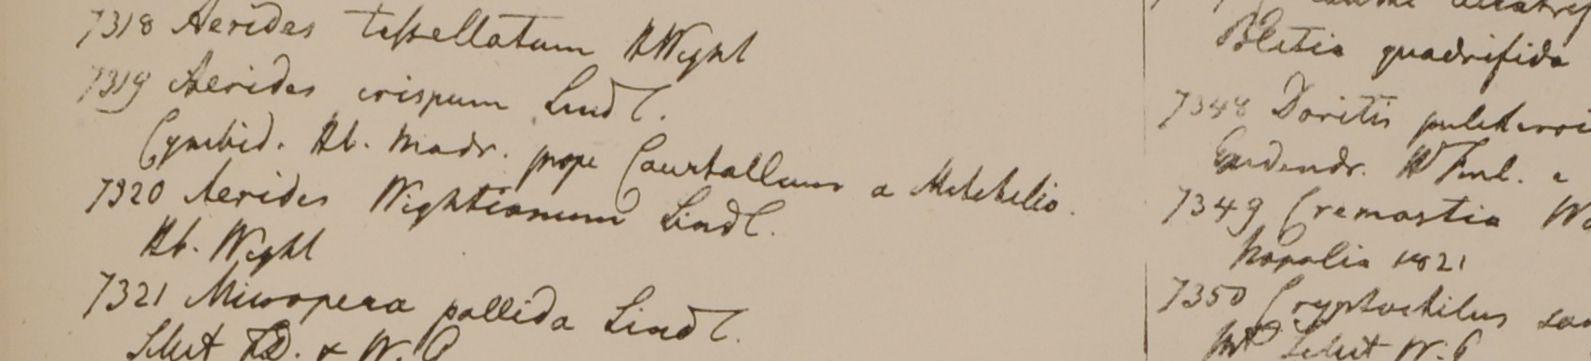 7318 Aerides tessellatum H Wight
7319 Aerides crispum Lindl.
Cymbid. Hb. Madr. prope Courtallum a Mitchelio.
7320 Aerides Wightianum Lindl.
Hb. Wight
7321 Micropera pallida Lindl.
Silhet FD. & W. G
Bletia quadrifida
7348 Doritis pulcherri
H Finl. a
7349 Cremastra Wa
Napalia 1821
7350 Cryptochilus san
Silhet W. G